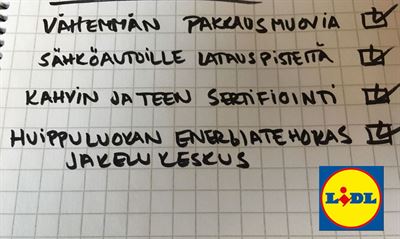 VÄHEMMÄN PAKKAUSMUOVIA
SÄHKÖAUTOILLE LATAUSPISTEITÄ
KAHVIN JA TEEN SERTIFIOINTI
HUIPPULUOKAN ENERGIATEHOKAS
JAKELUKESKUS
LIDL